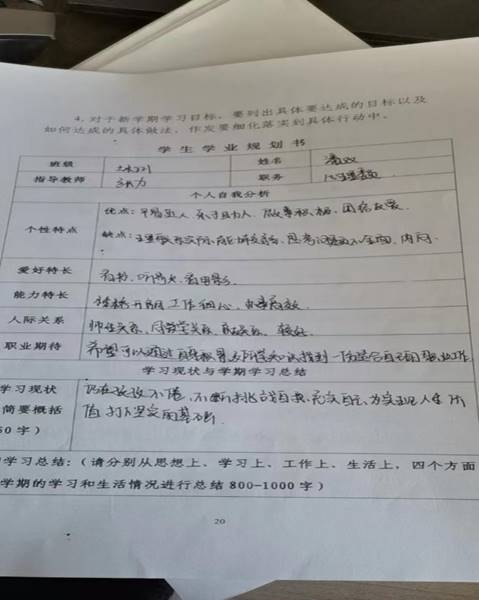 4. 对于新学期学习目标，要列出具体要达成的目标以及
如何达成的具体做法，作发要细化落实到具体行动中。
学生学业规划书
班级 姓名
指导教师 职务
个人自我分析
个性特点 优点：平易近人、乐于助人、做事积极、团结友爱
缺点：考虑问题不全面、内向
爱好特长 看书、听音乐、看电影
能力特长 性格开朗 工作细心
人际关系 师生关系、同学关系 较好
职业期待 希望可以通过 找到一份适合自己的 工作
学习现状与学期学习总结
学习现状
简要概括 仍在孜孜不倦，不断挑战自我，充实自己，为实现人生价
0字） 值打下坚实的基础
学习总结：（请分别从思想上、学习上、工作上、生活上，四个方面
学期的学习和生活情况进行总结 800-1000 字）
20